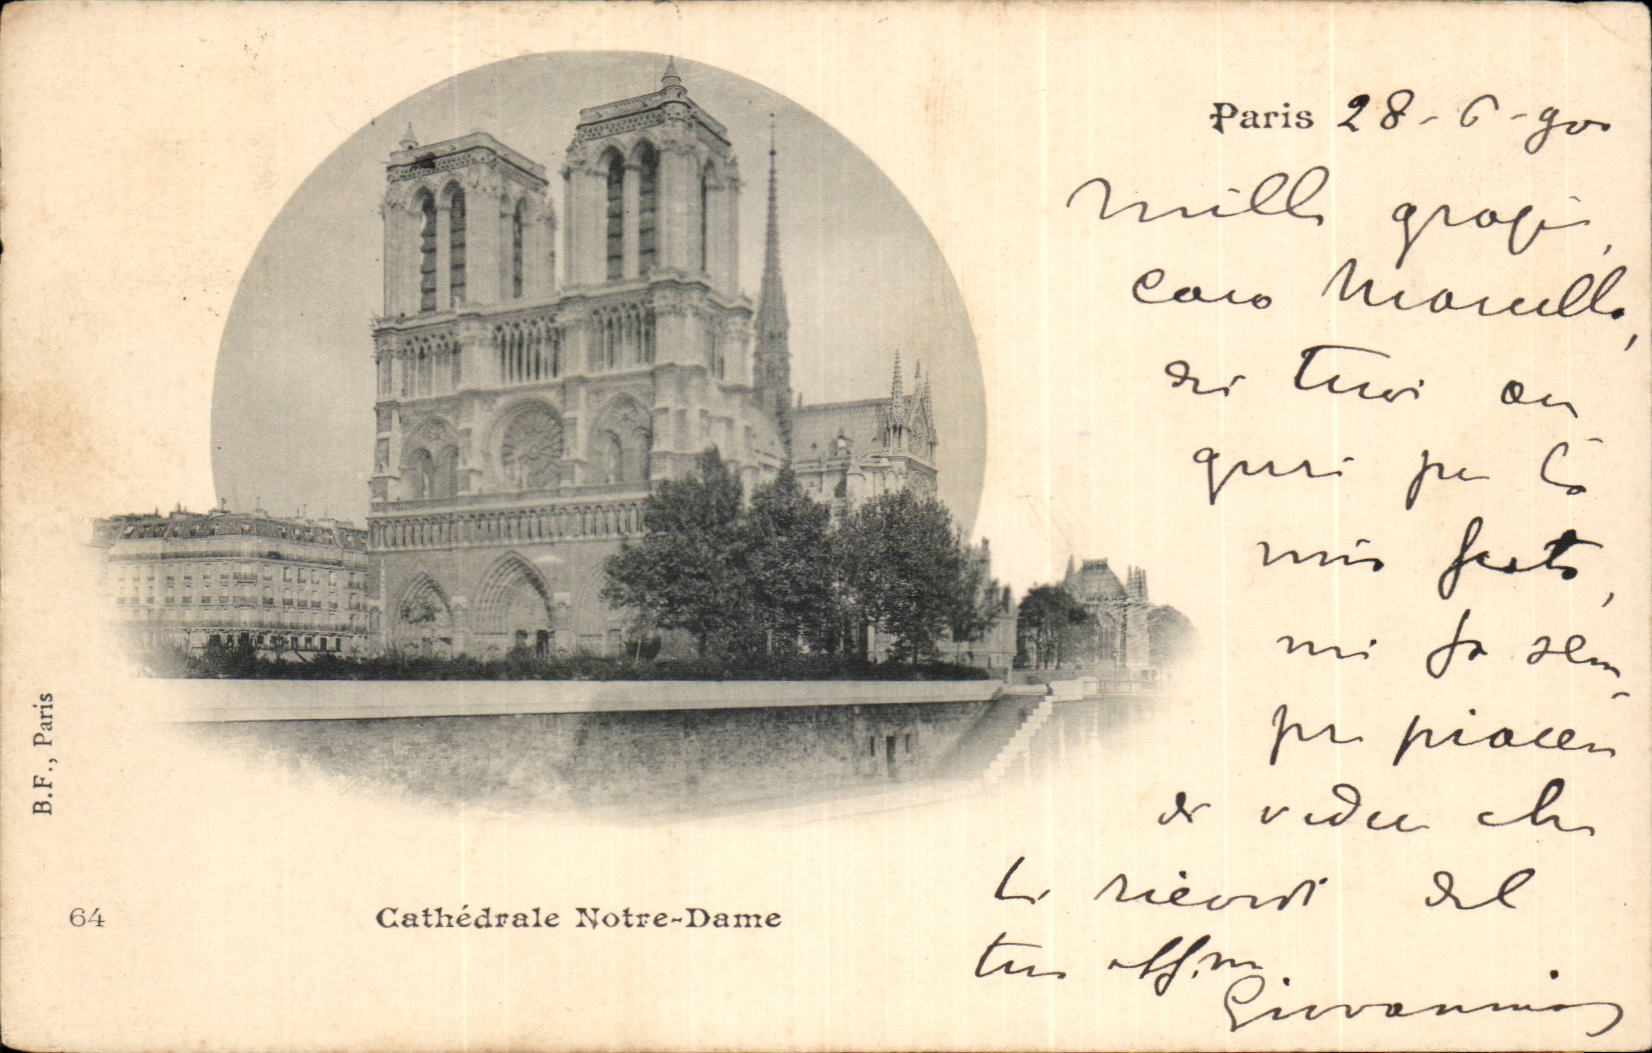 Paris 28-6-900
mille grazie,
caro Marcello,
dei tuoi au
guri per la
mia festa,
mi fa sem
pre piacere
di vedere che
ti ricordi del
tuo aff.mo
Giovannino
B.F., Paris
64
Cathédrale Notre-Dame